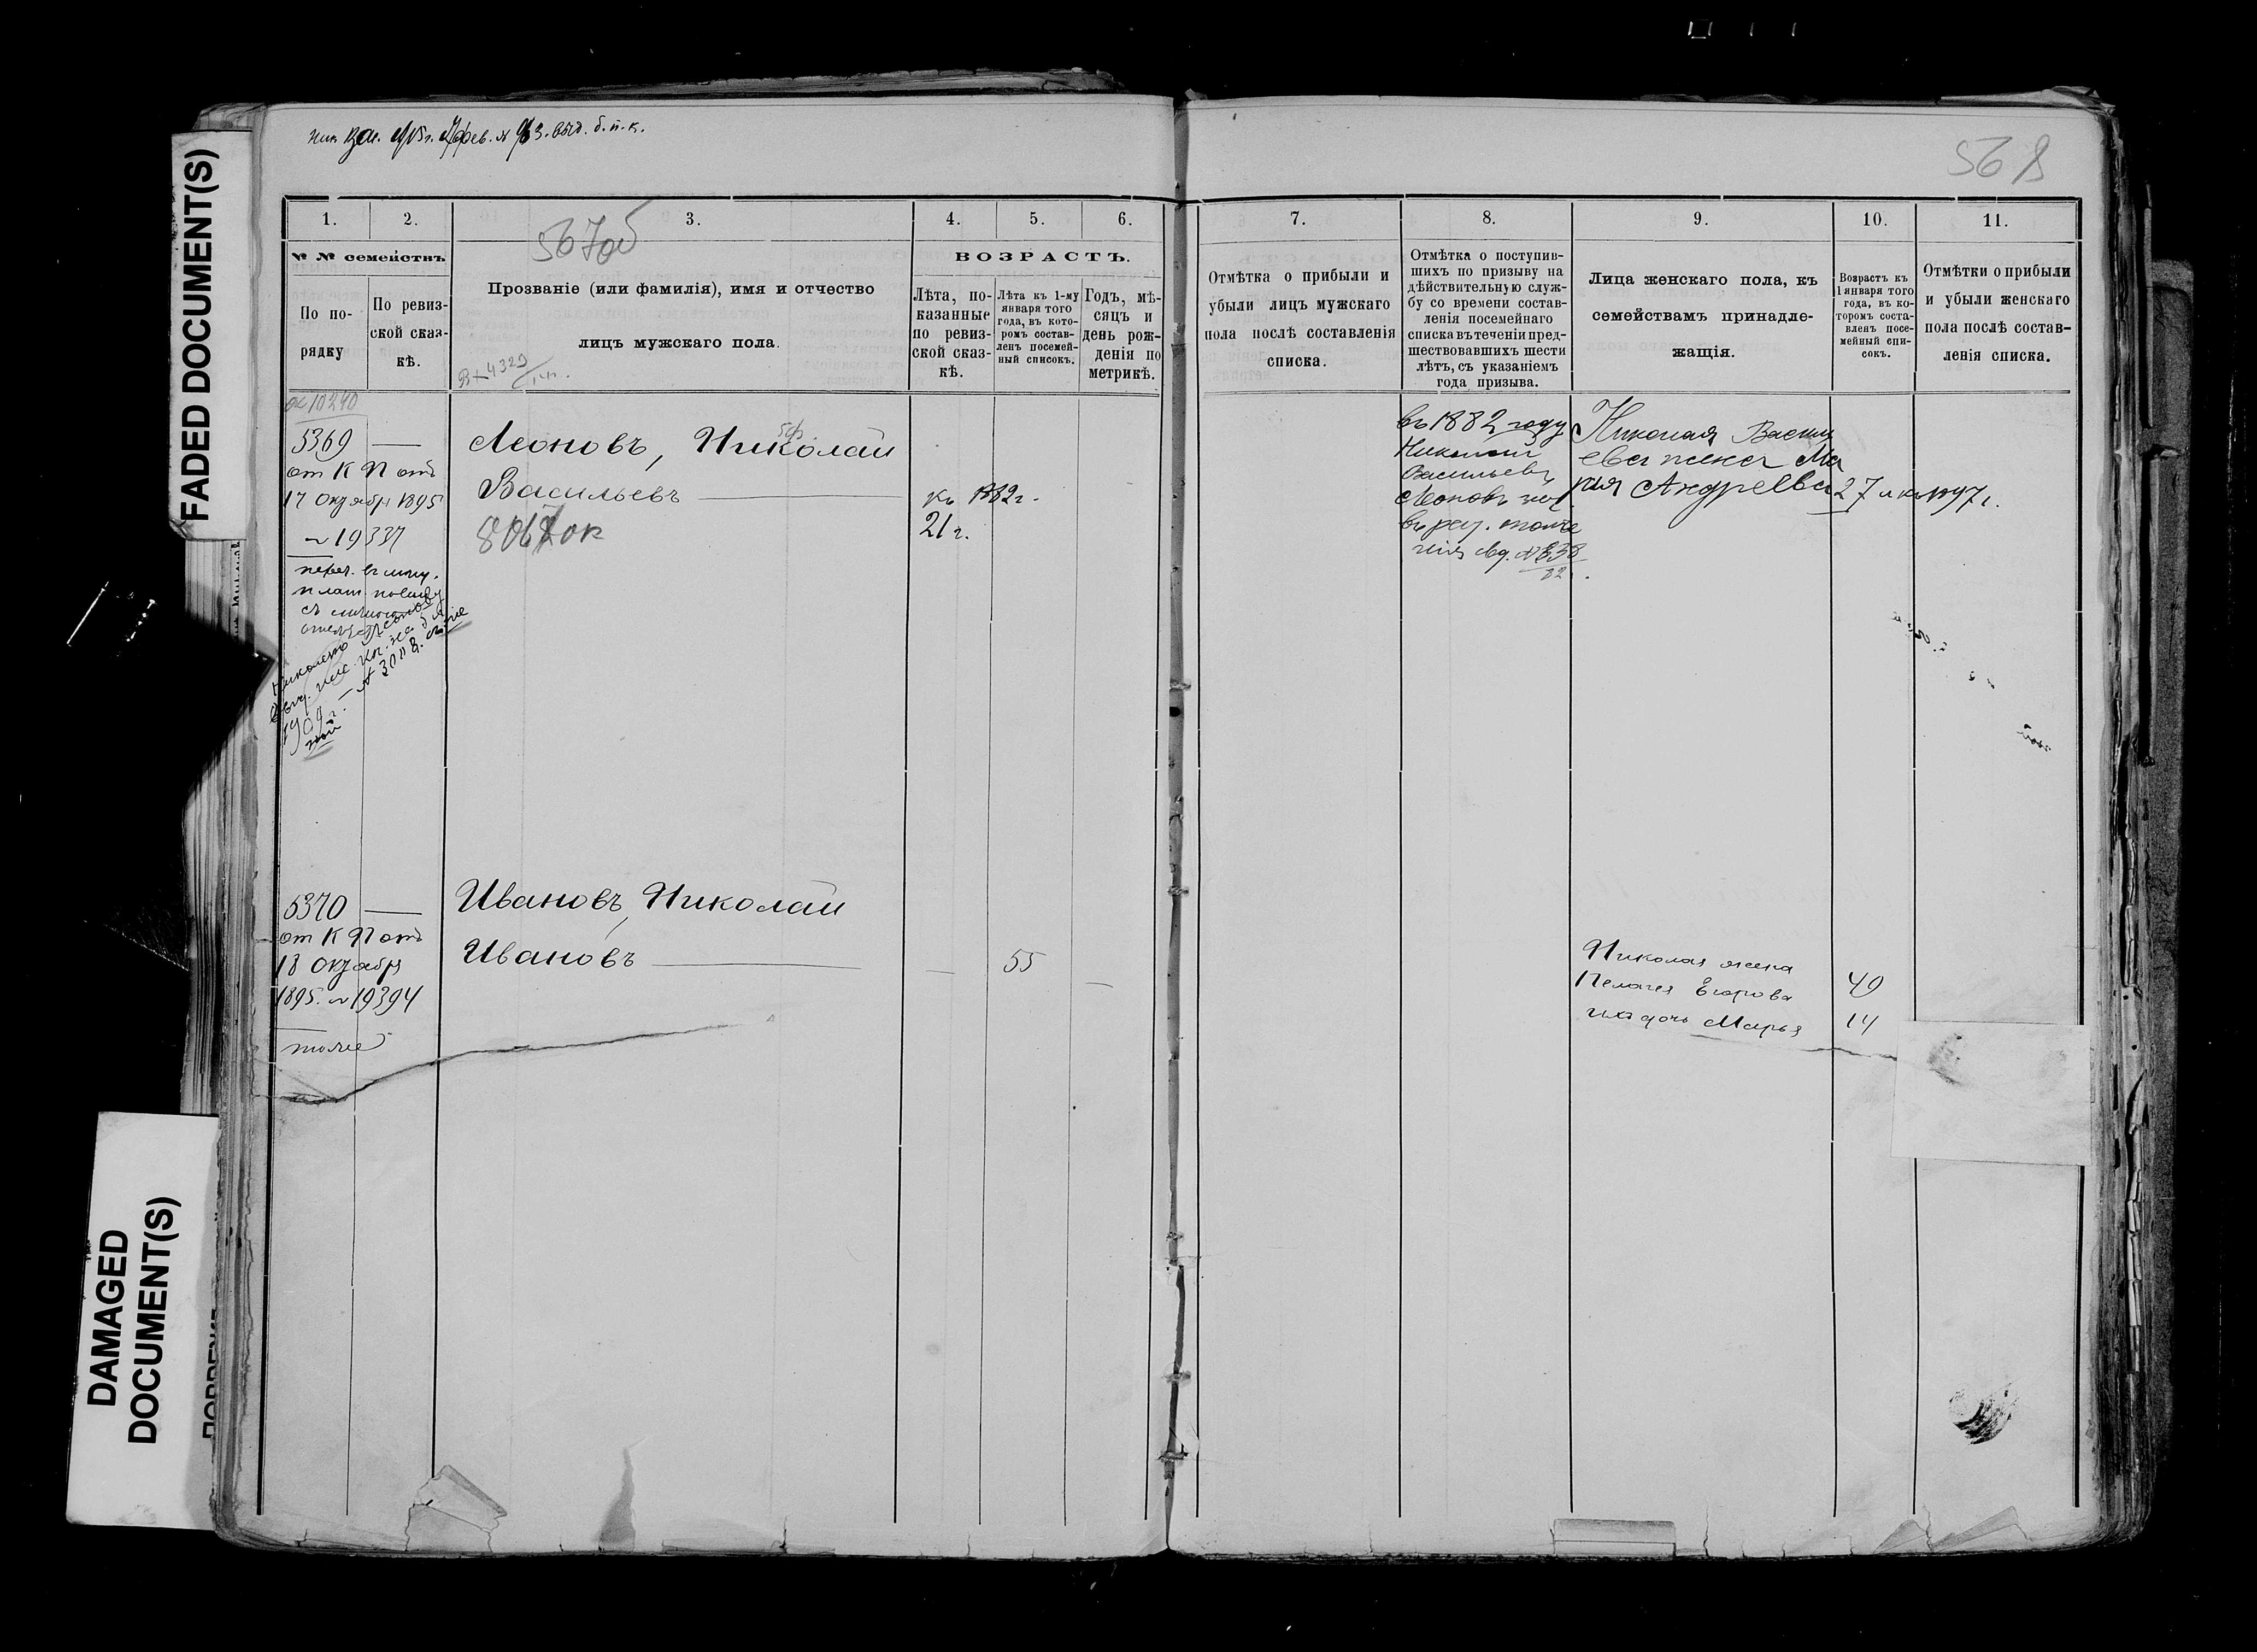 FADED DOCUMENT(S)
DAMAGED
DOCUMENT(S)
568
1. 2. 3. 4. 5. 6. 7. 8. 9. 10. 11.
567об
№ № семействъ
По по-
рядку
По ревиз-
ской сказ-
кѣ.
Прозваніе (или фамилія), имя и отчество
лицъ мужскаго пола.
ВОЗРАСТЪ.
Лѣта, по-
казанные
по ревиз-
ской сказ-
кѣ.
Лѣта къ 1-му
января того
года, въ кото-
ромъ состав-
ленъ посемей-
ный списокъ.
Годъ, мѣ-
сяцъ и
день рож-
денія по
метрикѣ.
Отмѣтка о прибыли и
убыли лицъ мужскаго
пола послѣ составленія
списка.
Отмѣтка о поступив-
шихъ по призыву на
дѣйствительную служ-
бу со времени состав-
ленія посемейнаго
списка въ теченіи пред-
шествовавшихъ шести
лѣтъ, съ указаніемъ
года призыва.
Лица женскаго пола, къ
семействамъ принадле-
жащія.
Возрастъ къ
1 января того
года, въ ко-
торомъ соста-
вленъ посе-
мейный спи-
сокъ.
Отмѣтки о прибыли
и убыли женскаго
пола послѣ состав-
ленія списка.
10240
5369 —
от К П отъ
17 Октября 1895
19337
Леоновъ, Николай
Васильевъ
къ 1882 г.
21 г.
въ 1882 году
Николай
Васильевъ
Леоновъ
Николая Василь
ева жена Ма
рія Андреева 27 л къ 1897 г.
5370 —
от К П отъ
18 Октября
1895. 19394
тоже
Ивановъ, Николай
Ивановъ
— 55 —
Николая жена
Пелагея Егорова 49
ихъ дочь Марья 14